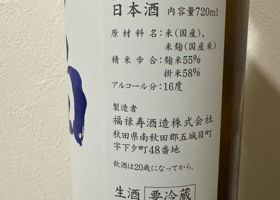 日本酒 内容量720ml
原材料名：米(国産)、
米麹(国産米)
精米歩合：麹米55%
掛米58%
アルコール分：16度
製造者
福禄寿酒造株式会社
秋田県南秋田郡五城目町
字下夕町48番地
飲酒は20歳になってから。
生酒 要冷蔵